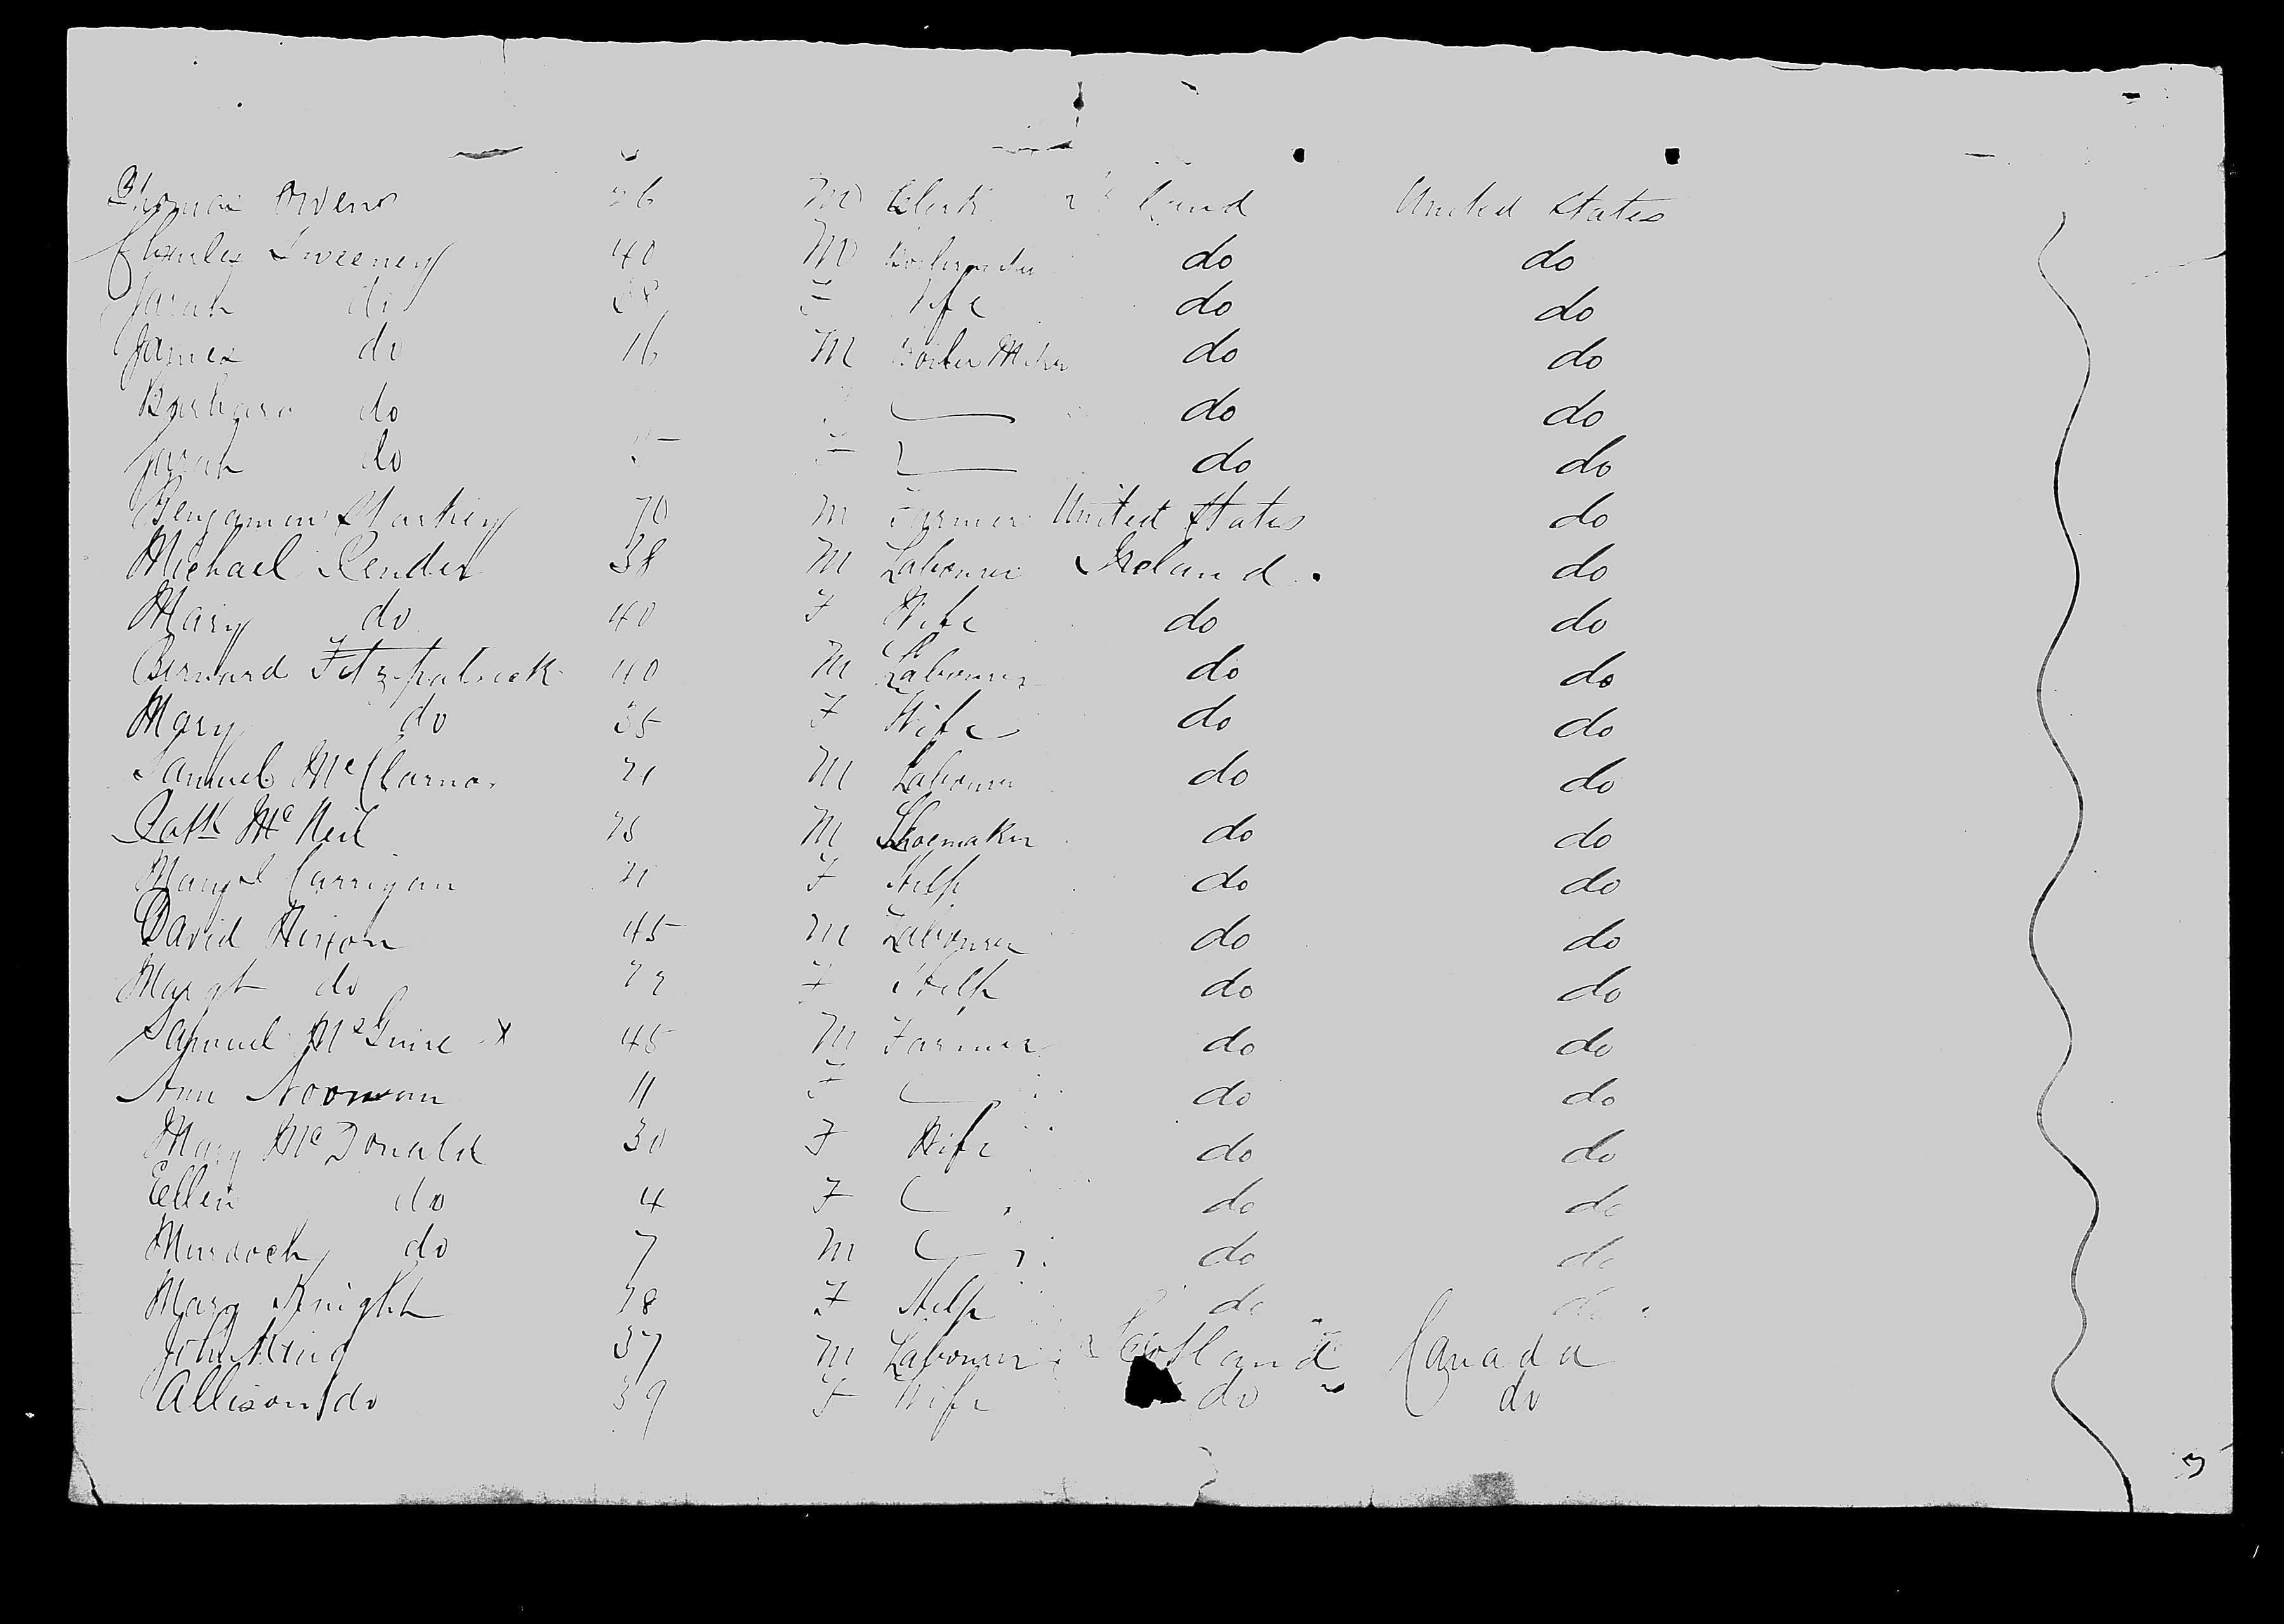 Thomas Owens 26 M Clerk United States
Charles Sweeney 40 M do do
Sarah do 38 F Wife do do
James do 16 M Boiler Maker do do
Barbara do do do
Sarah do 5 F do do
Benjamin Starkey 70 M Farmer United States do
Michael Render 38 M Labourer Ireland. do
Mary do 40 F Wife do do
Bernard Fitzpatrick 40 M Labourer do do
Mary do 35 F Wife do do
Samuel Mc 21 M Labourer do do
Patk Mc Neil M Shoemaker do do
Margt Carrigan F Help do do
David Nixon 45 M Labourer do do
Margt do 22 F Help do do
Samuel McGuire x 45 M Farmer do do
Ann Noonan 11 F do do
Mary McDonald 30 F Wife do do
Ellen do 4 F do do
Murdoch do 7 M do do
Mary Knight 28 F Help do do
John King 37 M Labourer Scotland Canada
Allison do 39 F Wife do do
3